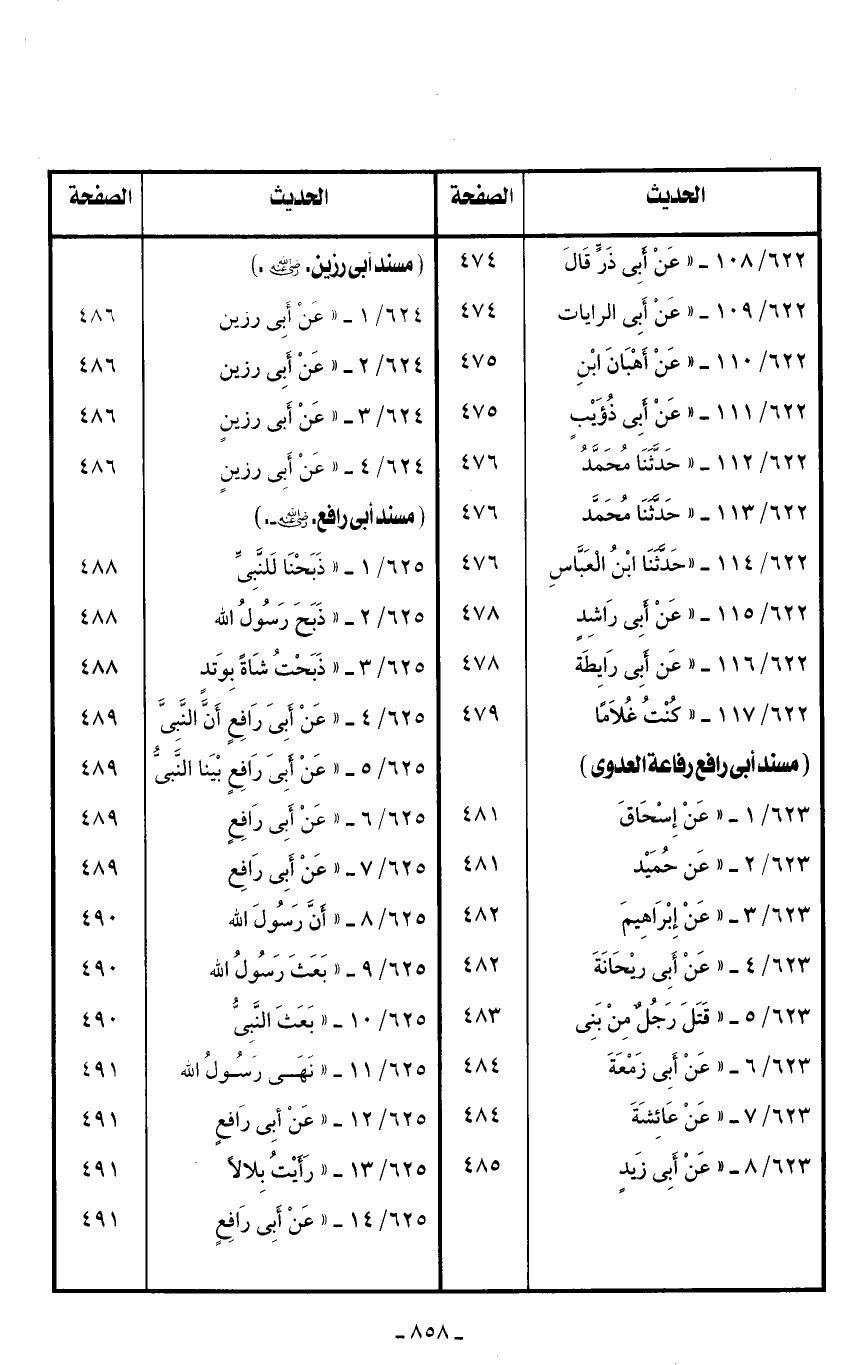 الحديث الصفحة
٦٢٢/ ١٠٨ ـ « عَنْ أَبِى ذَرٍّ قَالَ ٤٧٤
٦٢٢/ ١٠٩ ـ « عَنْ أَبِى الرايات ٤٧٤
٦٢٢/ ١١٠ ـ « عَنْ أَهْبَانَ ابْنِ ٤٧٥
٦٢٢/ ١١١ ـ « عَنْ أَبِى ذُؤَيْبٍ ٤٧٥
٦٢٢/ ١١٢ ـ « حَدَّثَنَا مُحَمَّدُ ٤٧٦
٦٢٢/ ١١٣ ـ « حَدَّثَنَا مُحَمَّد ٤٧٦
٦٢٢/ ١١٤ ـ «حَدَّثَنَا ابْنُ الْعَبَّاسِ ٤٧٦
٦٢٢/ ١١٥ ـ « عَنْ أَبِى رَاشِدٍ ٤٧٨
٦٢٢/ ١١٦ ـ « عَن أَبى رَابِطَة ٤٧٨
٦٢٢/ ١١٧ ـ « كُنْتُ غُلَامًا ٤٧٩
( مسند أبى رافع رفاعة العدوى )
٦٢٣/ ١ ـ « عَنْ إِسْحَاقَ ٤٨١
٦٢٣/ ٢ ـ « عَن حُمَيْد ٤٨١
٦٢٣/ ٣ ـ « عَنْ إِبْرَاهِيمَ ٤٨٢
٦٢٣/ ٤ ـ « عَنْ أَبِى ريْحَانَةَ ٤٨٢
٦٢٣/ ٥ ـ « قَتَلَ رَجُلٌ مِنْ بَنِى ٤٨٣
٦٢٣/ ٦ ـ « عَنْ أَبِى زَمْعَةَ ٤٨٤
٦٢٣/ ٧ ـ « عَنْ عَائِشَةَ ٤٨٤
٦٢٣/ ٨ ـ « عَنْ أَبِى زَيدٍ ٤٨٥
الحديث الصفحة
( مسند أبى رزين. ﷺ .)
٦٢٤/ ١ ـ « عَنْ أَبِى رزين ٤٨٦
٦٢٤/ ٢ ـ « عَنْ أَبِى رزين ٤٨٦
٦٢٤/ ٣ ـ « عَنْ أَبِى رزينٍ ٤٨٦
٦٢٤/ ٤ ـ « عَنْ أَبِى رزينٍ ٤٨٦
( مسند أبى رافع. رضي الله عنه ـ.)
٦٢٥/ ١ ـ « ذَبَحْنَا لَلنَّبِىِّ ٤٨٨
٦٢٥/ ٢ ـ « ذَبَحَ رَسُولُ الله ٤٨٨
٦٢٥/ ٣ ـ « ذَبَحْتُ شَاةً بِوَتَدٍ ٤٨٨
٦٢٥/ ٤ ـ « عَنْ أَبِىَ رَافِعٍ أَنَّ النَّبِىَّ ٤٨٩
٦٢٥/ ٥ ـ « عَنْ أَبِىَ رَافِعِ بْيَنا النَّبِىُّ ٤٨٩
٦٢٥/ ٦ ـ « عَنْ أَبِى رَافِعٍ ٤٨٩
٦٢٥/ ٧ ـ « عَنْ أَبِى رَافِعِ ٤٨٩
٦٢٥/ ٨ ـ « أَنَّ رَسُولَ الله ٤٩٠
٦٢٥/ ٩ ـ « بَعَثَ رَسُولُ الله ٤٩٠
٦٢٥/ ١٠ ـ « بَعَثَ النَّبِىُّ ٤٩٠
٦٢٥/ ١١ ـ « نَهَـى رَسُـولُ الله ٤٩١
٦٢٥/ ١٢ ـ « عَنْ أبِى رَافعٍ ٤٩١
٦٢٥/ ١٣ ـ « رَأَيْتُ بِلالاً ٤٩١
٦٢٥/ ١٤ ـ « عَنْ أَبِى رَافِعٍ ٤٩١
ـ ٨٥٨ ـ